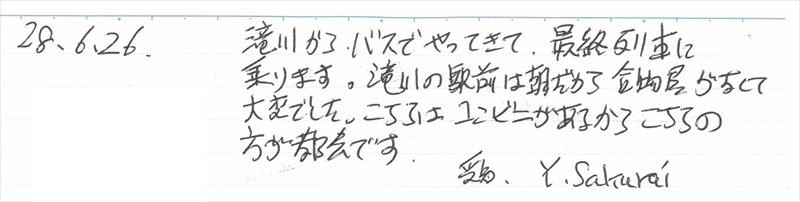 28.6.26. 滝川からバスでやってきて、最終列車に
乗ります。滝川の駅前は朝だから食物屋がなくて
大変でした。こちらはコンビニがあるからこちらの
方が都会です。
Y.Sakurai